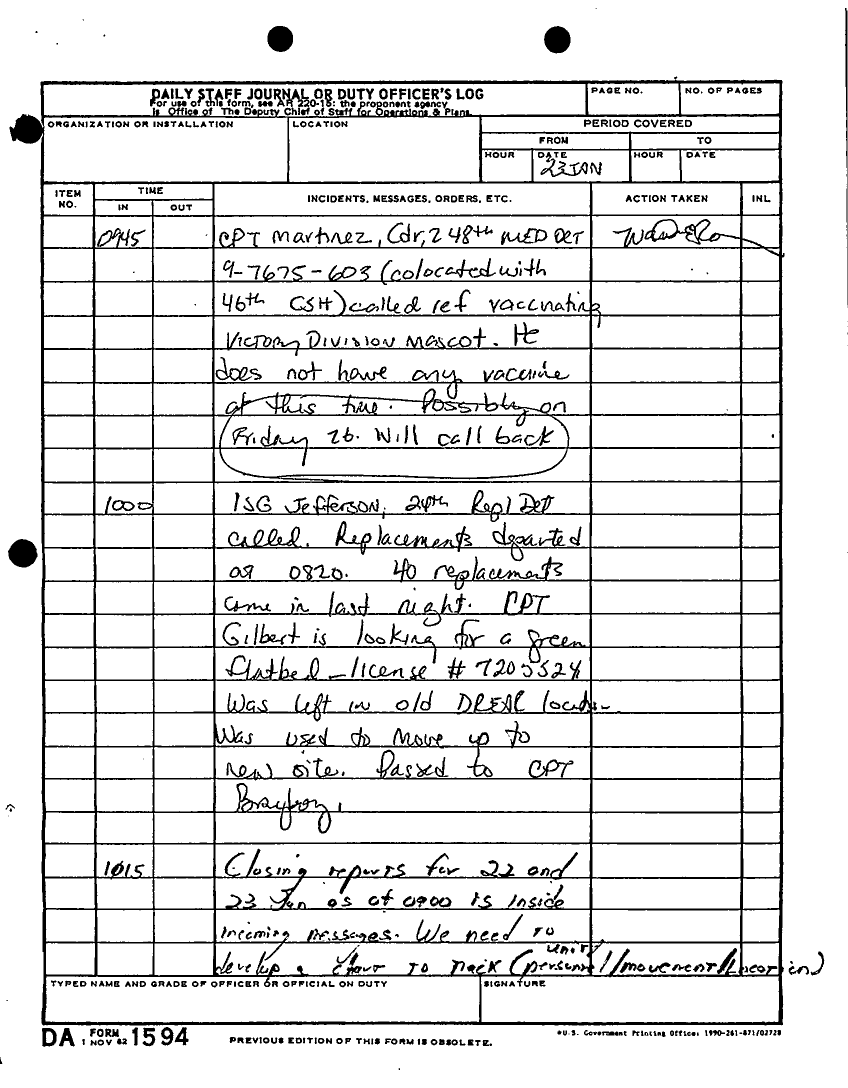 DAILY STAFF JOURNAL OR DUTY OFFICER'S LOG
For use of this form, see AR 220-15: the proponent agency
is Office of The Deputy Chief of Staff for Operations & Plans.
PAGE NO.
NO. OF PAGES
ORGANIZATION OR INSTALLATION
LOCATION
PERIOD COVERED
FROM
TO
HOUR
DATE
HOUR
DATE
23 JAN
ITEM NO.
TIME
IN
OUT
INCIDENTS, MESSAGES, ORDERS, ETC.
ACTION TAKEN
INL
0945
CPT Martinez, Cdr, 248th MED DET
9-7675-603 (colocated with
46th CSH) called ref vaccinating
VICTORY DIVISION MASCOT. He
does not have any vaccine
at this time. Possibly on
Friday 26. Will call back
1000
1SG Jefferson, 24th Repl Det
called. Replacements departed
at 0820. 40 replacements
came in last night. CPT
Gilbert is looking for a green
flatbed - license # 7205524
Was left in old DREAR
Was used to move up to
new site. Passed to CPT
Brayboy.
1015
Closing reports for 22 and
23 Jan as of 0900 is inside
incoming messages. We need to
develop a chart to track unit (personnel/movement/Location)
TYPED NAME AND GRADE OF OFFICER OR OFFICIAL ON DUTY
SIGNATURE
DA FORM 1 NOV 62 1594
PREVIOUS EDITION OF THIS FORM IS OBSOLETE.
*U.S. Government Printing Office: 1990-261-871/02728